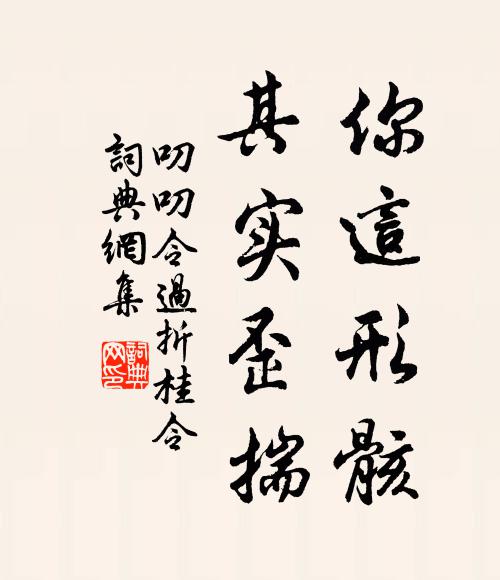 你這形骸
其实歪揣
叨叨令過折桂令
詞典網集
詞典網印